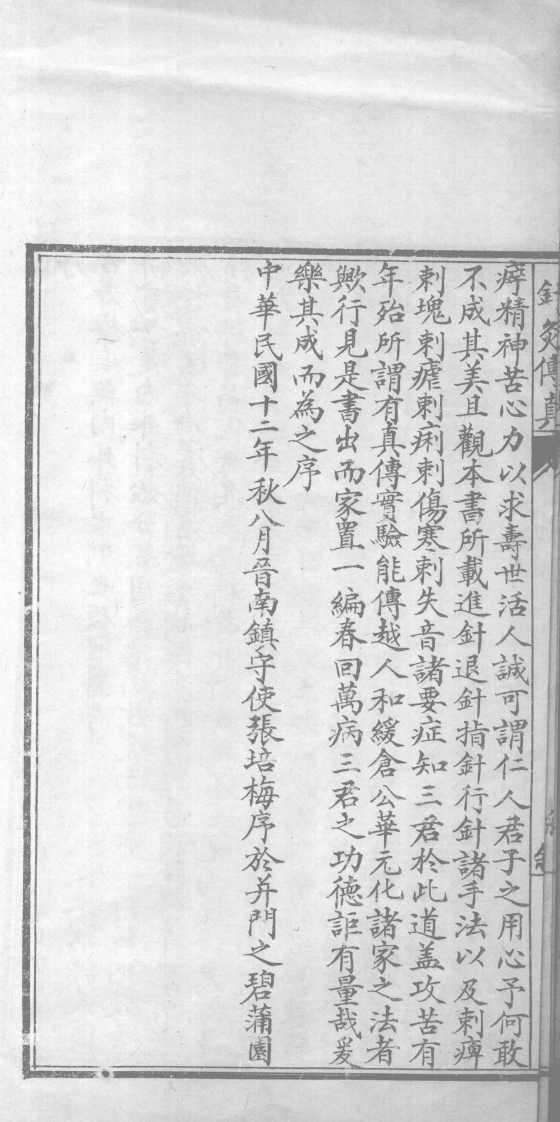 針灸傳真
瘁精神苦心力以求壽世活人誠可謂仁人君子之用心予何敢
不成其美且觀本書所載進針退針搯針行針諸手法以及刺痺
刺塊刺瘧刺痢刺傷寒刺失音諸要症知三君於此道盖攻苦有
年殆所謂有真傳實驗能傳越人和緩倉公華元化諸家之法者
歟行見是書出而家置一編春回萬病三君之功德詎有量哉爰
樂其成而為之序
中華民國十二年秋八月晉南鎮守使張培梅序於并門之碧蒲園